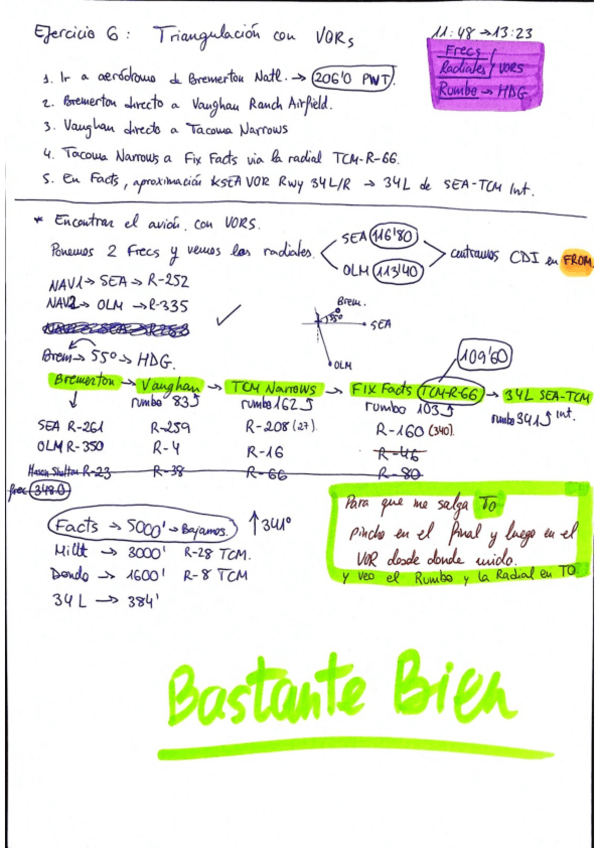 Ejercicio 6: Triangulación con VORs
11:48 → 13:23
Frecs
Radiales / VORS
Rumbo → HDG.
1. Ir a aeródromo de Bremerton Natl. → 206'0 PWT.
2. Bremerton directo a Vaughan Ranch Airfield.
3. Vaughan directo a Tacoma Narrows
4. Tacoma Narrows a Fix Facts via la radial TCM-R-66.
5. En Facts, aproximación KSEA VOR Rwy 34L/R → 34L de SEA-TCM Int.
* Encontrar el avión con VORS.
Ponemos 2 Frecs y vemos las radiales.
SEA 116'80
OLM 113'40
centramos CDI en FROM.
NAV1 → SEA → R-252
NAV2 → OLM → R-335
Brem → 55° → HDG.
Brem.
55°
SEA
OLM
109'60
Bremerton → Vaughan → TCM Narrows → FIX Facts TCM-R-66 → 34L SEA-TCM
rumbo 83 rumbo 162 rumbo 103 rumbo 341 Int.
SEA R-261 R-259 R-208 (27). R-160 (340).
OLM R-350 R-4 R-16 R-46
R-23 R-38 R-66 R-80
frec 348.0
Facts → 5000' → Bajamos. ↑ 341°
Millt → 3000' R-28 TCM.
Dondo → 1600' R-8 TCM
34L → 384'
Para que me salga TO
pincho en el final y luego en el
VOR desde donde mido.
y veo el Rumbo y la Radial en TO.
Bastante Bien